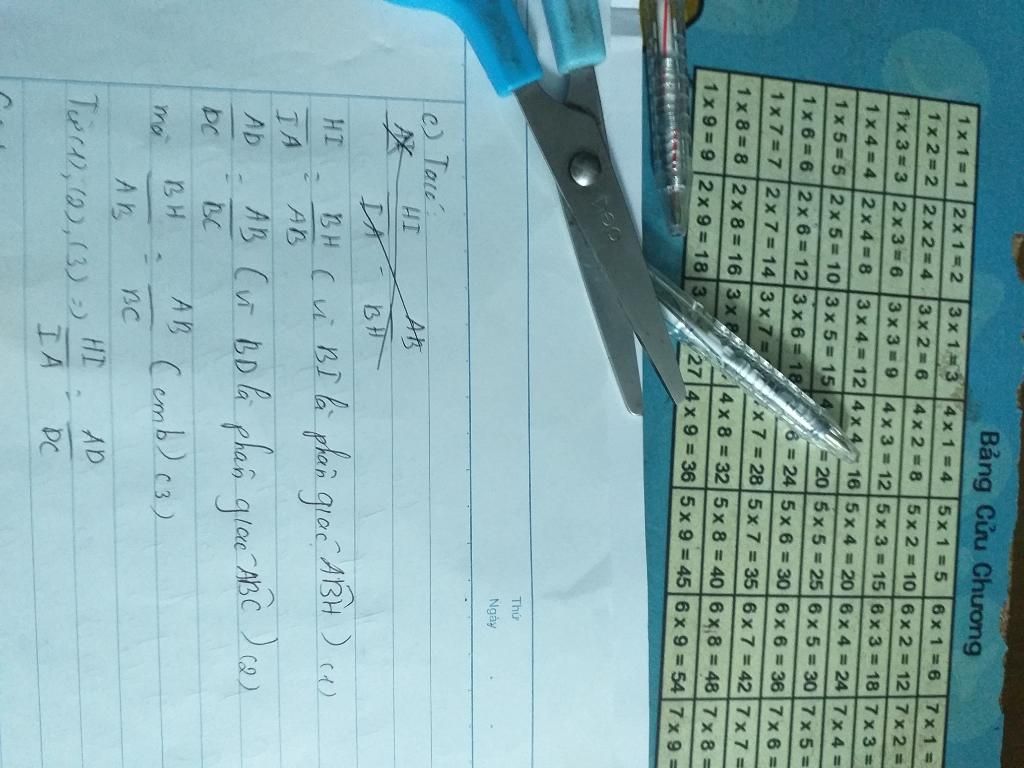 Bảng Cửu Chương
1 x 1 = 1 2 x 1 = 2 3 x 1 = 3 4 x 1 = 4 5 x 1 = 5 6 x 1 = 6 7 x 1 =
1 x 2 = 2 2 x 2 = 4 3 x 2 = 6 4 x 2 = 8 5 x 2 = 10 6 x 2 = 12 7 x 2 =
1 x 3 = 3 2 x 3 = 6 3 x 3 = 9 4 x 3 = 12 5 x 3 = 15 6 x 3 = 18 7 x 3 =
1 x 4 = 4 2 x 4 = 8 3 x 4 = 12 4 x 4 16 5 x 4 = 20 6 x 4 = 24 7 x 4 =
1 x 5 = 5 2 x 5 = 10 3 x 5 = 15 4 = 20 5 x 5 = 25 6 x 5 = 30 7 x 5 =
1 x 6 = 6 2 x 6 = 12 3 x 6 = 18 6 = 24 5 x 6 = 30 6 x 6 = 36 7 x 6 =
1 x 7 = 7 2 x 7 = 14 3 x 7 = x 7 = 28 5 x 7 = 35 6 x 7 = 42 7 x 7 =
1 x 8 = 8 2 x 8 = 16 3 x 8 4 x 8 = 32 5 x 8 = 40 6 x 8 = 48 7 x 8 =
1 x 9 = 9 2 x 9 = 18 3 27 4 x 9 = 36 5 x 9 = 45 6 x 9 = 54 7 x 9 =
Thứ
Ngày
c) Ta có:
HI / IA = AB / BH
HI / IA = BH / AB (vì BI là phân giác ABH) (1)
AD / DC = AB / BC (vì BD là phân giác ABC) (2)
mà BH / AB = AB / BC (cmb) (3)
Từ (1), (2), (3) => HI / IA = AD / DC